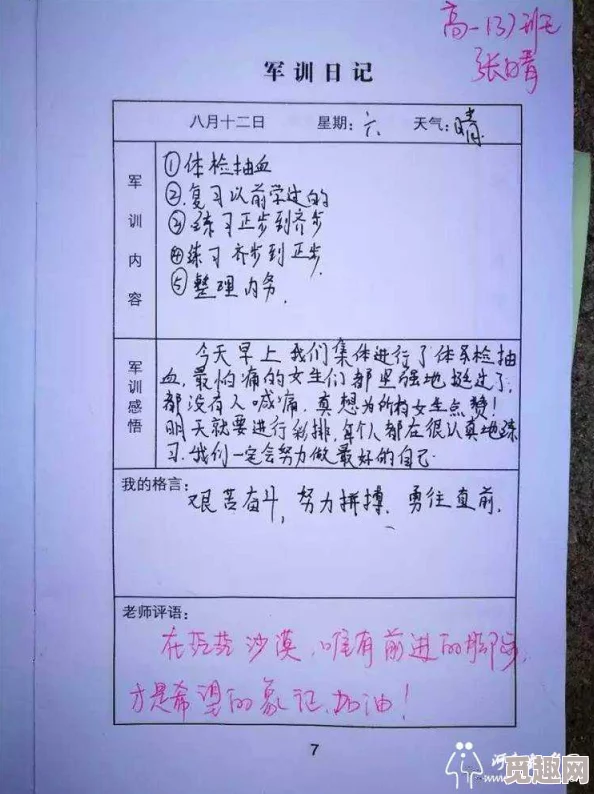 高一(3)班
张晴
军训日记
八月十二日 星期:六 天气:晴
军训内容
①体检抽血
②复习以前学过的
③练习正步到齐步
④练习齐步到正步
⑤整理内务.
军训感悟
今天早上我们集体进行了体检抽
血,最怕痛的女生们都坚强地挺过了,
都没有人喊痛.真想为所有女生点赞!
明天就要进行彩排,每个人都在很认真地练
习.我们一定会努力做最好的自己.
我的格言:
艰苦奋斗,努力拼搏、勇往直前.
老师评语:
在茫茫沙漠,唯有前进的脚步,
才是希望的象征.加油!
7
觅趣网